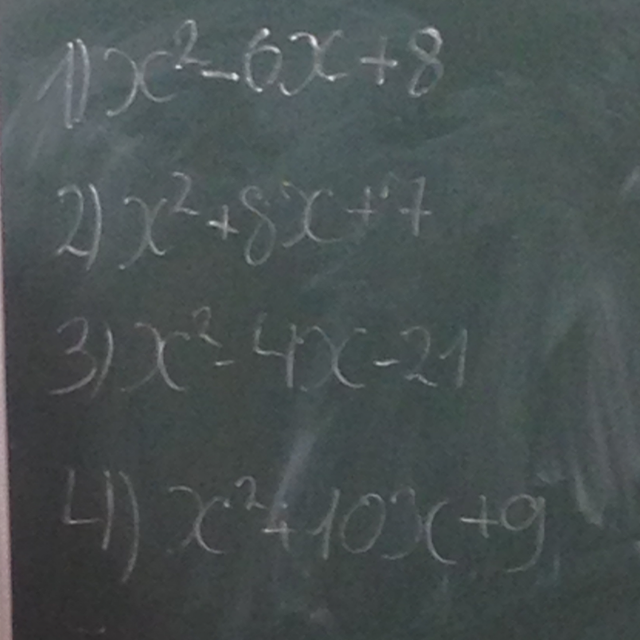 1) x² - 6x + 8
2) x² + 8x + 7
3) x² - 4x - 21
4) x² + 10x + 9